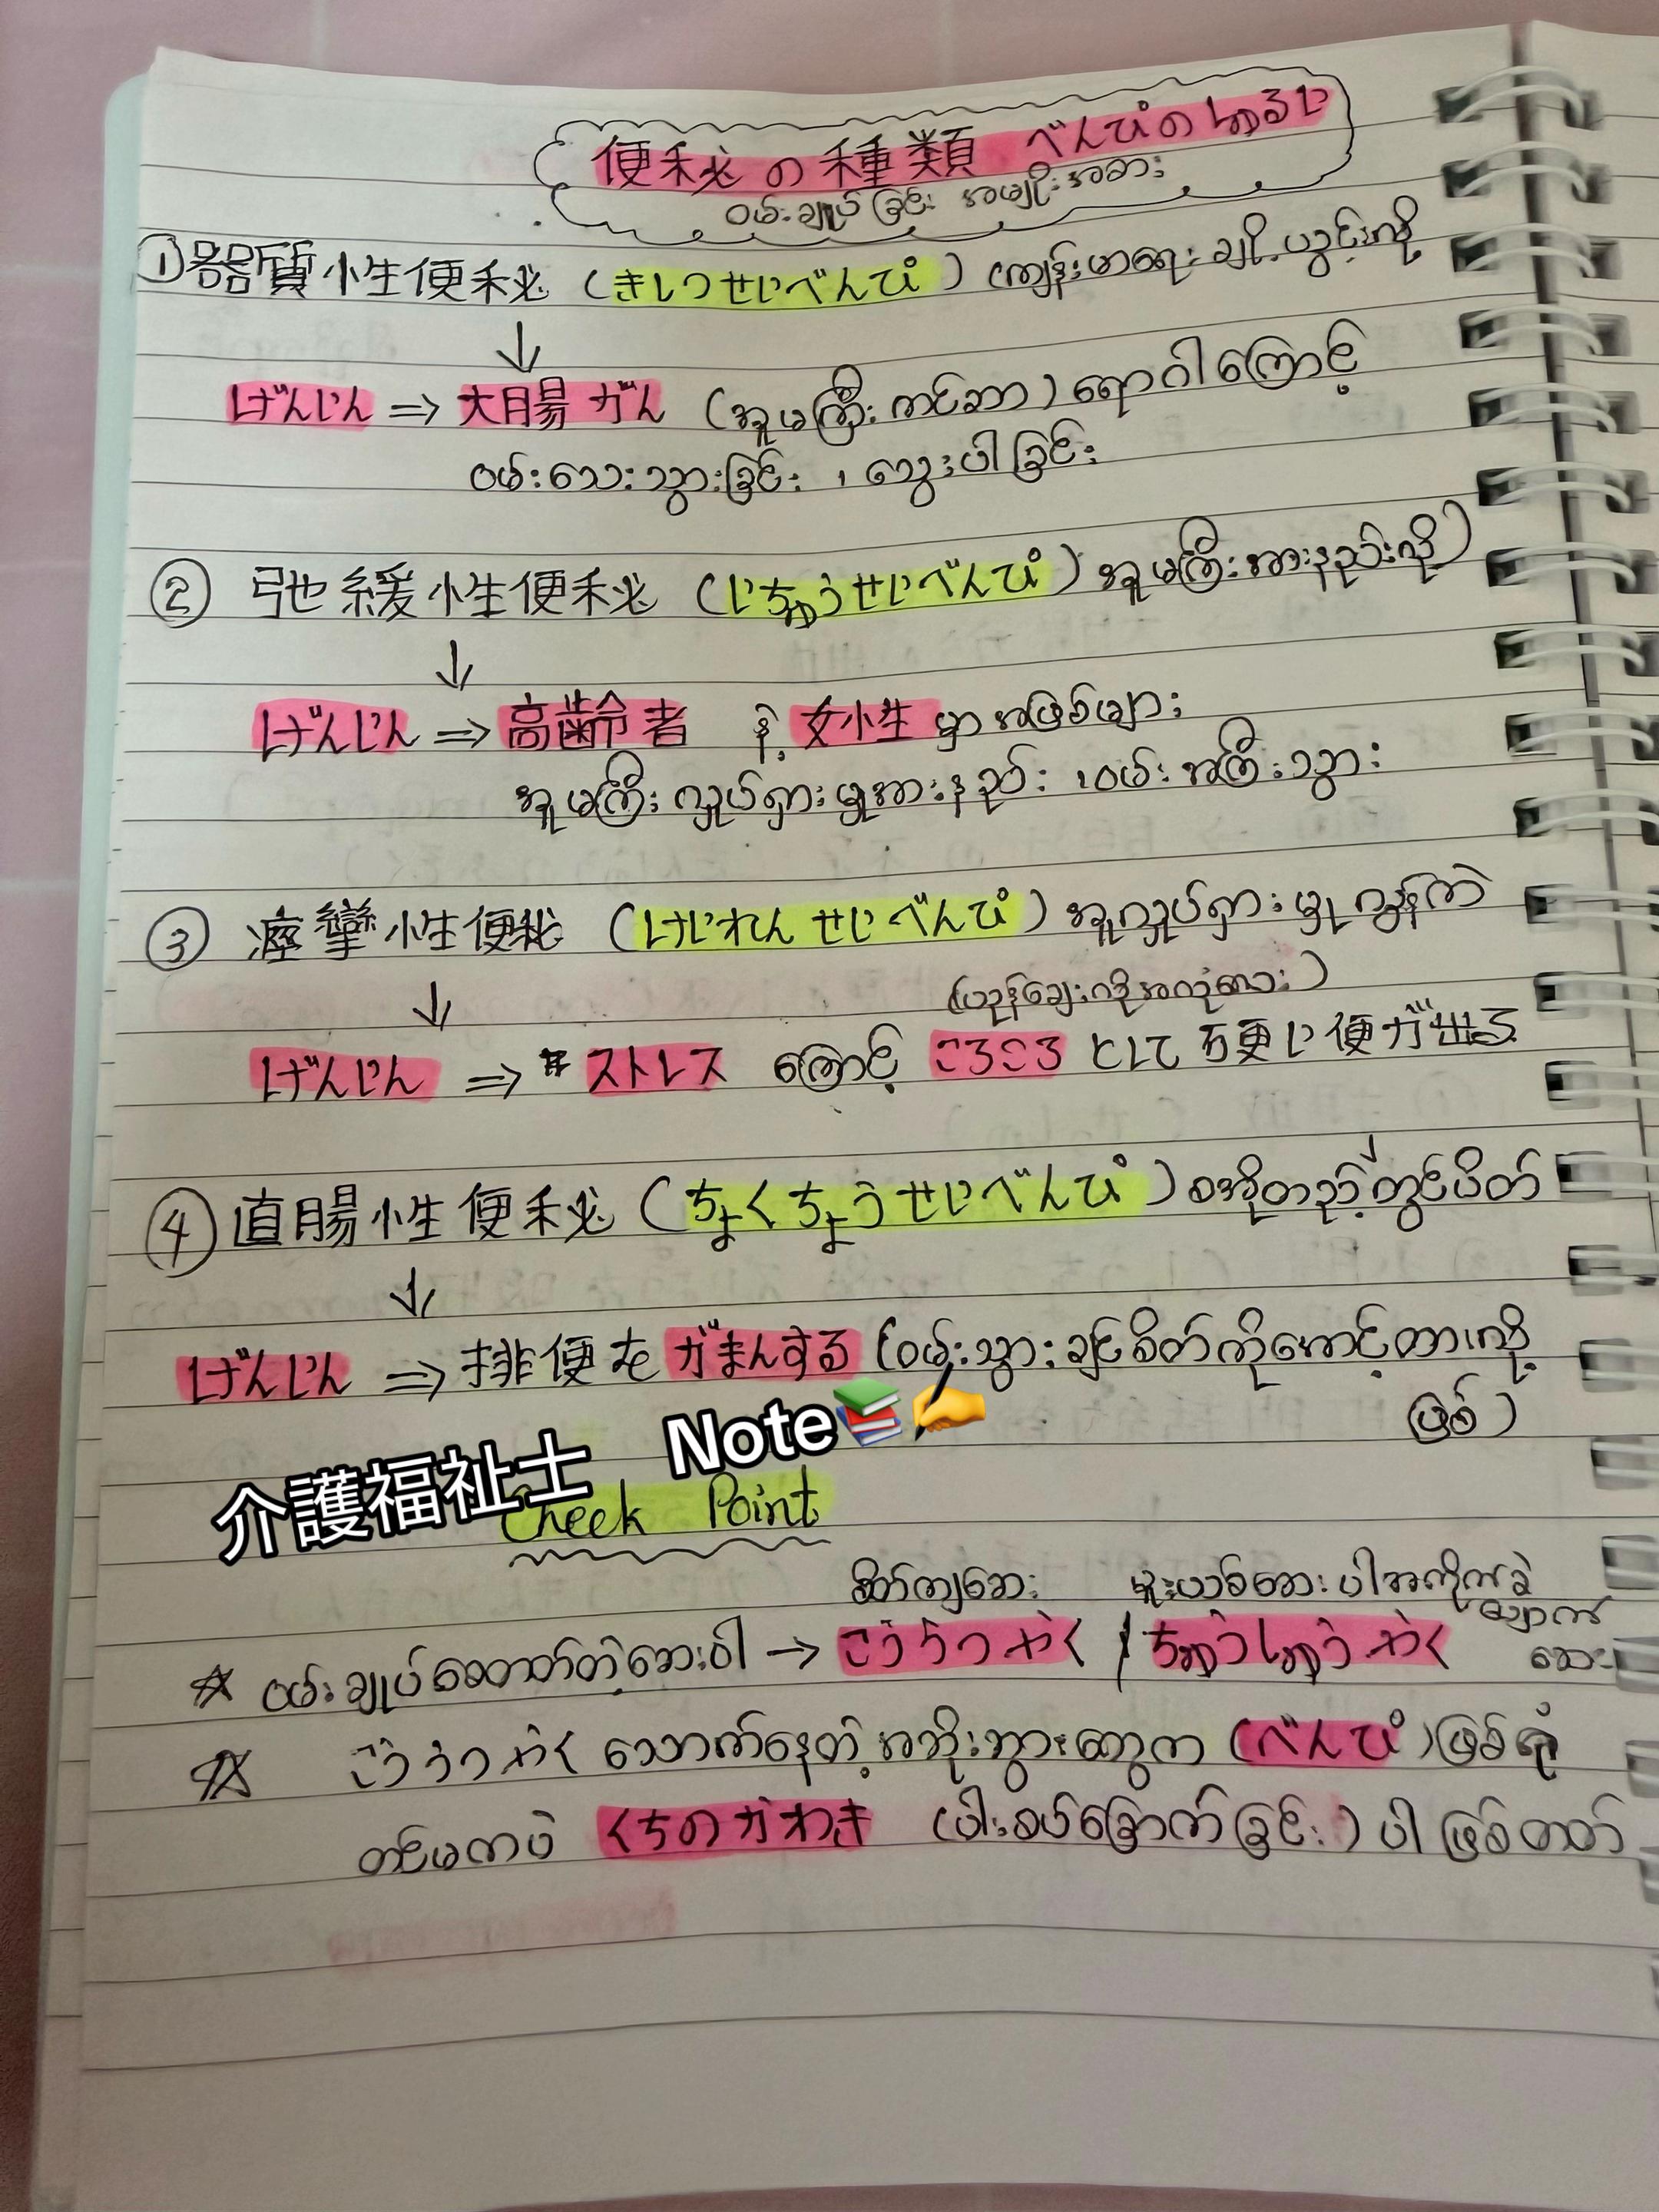 便秘の種類 べんぴのしゅるい
ဝမ်းချုပ်ခြင်း အမျိုးအစား
①器質性便秘 (きしつせいべんぴ) (ကျန်းမာရေး ချို့ယွင်းလို့
↓
げんいん ⇒ 大腸がん (အူမကြီးကင်ဆာ) ရောဂါကြောင့်
ဝမ်းသေးသွားခြင်း ၊ သွေးပါခြင်း
② 弛緩性便秘 (じちゅうせいべんぴ) အူမကြီးအားနည်းလို့)
↓
げんいん ⇒ 高齢者 နဲ့ 女性 မှာအဖြစ်များ
အူမကြီး လှုပ်ရှားမှုအားနည်း ၊ ဝမ်းအကြီးသွား
③ 痙攣性便秘 (けいれんせいべんぴ) အူလှုပ်ရှားမှုလွန်ကဲ
↓
(ယုန်ချေးလိုအလုံးလေး)
げんいん ⇒ ストレス ကြောင့် ころころ として硬い便が出る
④ 直腸性便秘 (ちょくちょうせいべんぴ) စအိုတည့်တွင်ပိတ်
↓
げんいん ⇒ 排便をがまんする (ဝမ်းသွားချင်စိတ်ကိုအောင့်တာလို့
ဖြစ်)
介護福祉士 Note📚✍️
Cheek Point
စိတ်ကျဆေး မူးယစ်ဆေးပါအကိုက်ခဲ
ပျောက်
ဆေး
☆ ဝမ်းချုပ်စေတတ်တဲ့ဆေးဝါး → こううつやく / ちゅうしゅうやく
☆ こううつやく သောက်နေတဲ့ အဘိုးဘွားတွေက (べんぴ) ဖြစ်ရုံ
တင်မကပဲ くちのかわき (ပါးစပ်ခြောက်ခြင်း) ပါ ဖြစ်တတ်